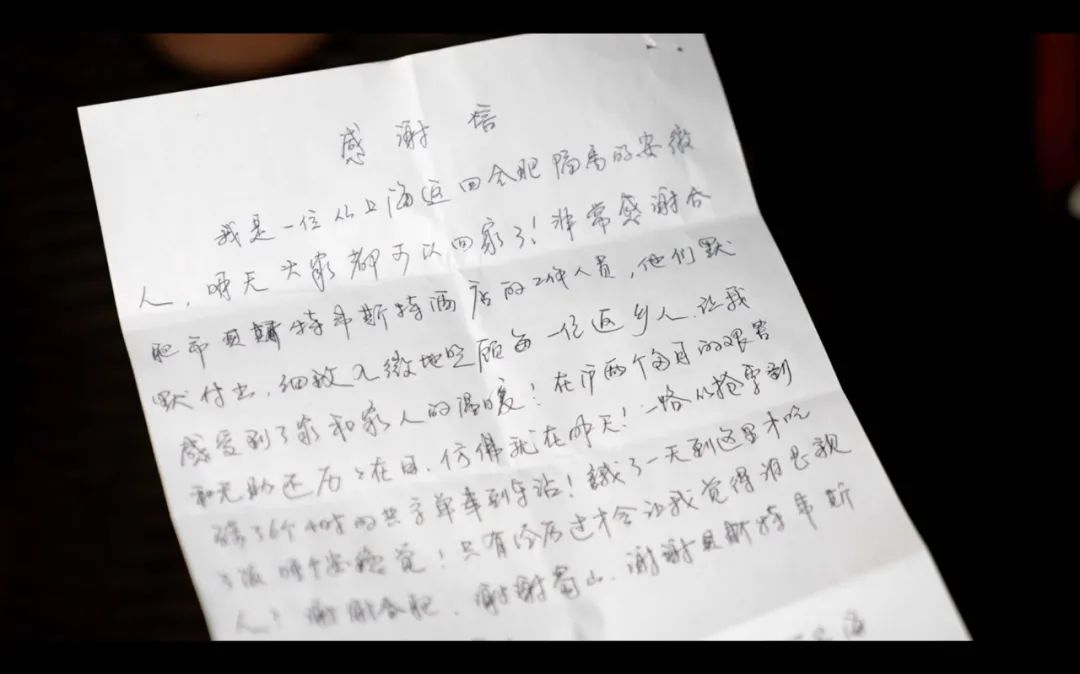 感谢信
我是一位从上海返回合肥隔离的安徽
人，明天大家都可以回家了！非常感谢合
肥市贝斯特韦斯特酒店的工作人员，他们默
默付出，细致入微地照顾每一位返乡人，让我
感受到了家和家人的温暖！在沪两个多月的艰苦
和无助还历历在目，仿佛就在昨天！一路从抢票到
骑了6个小时的共享单车到车站！饿了一天到这里才吃
了饭 睡个安稳觉！只有经历过才会让我觉得谁是亲
人！谢谢合肥、谢谢蜀山、谢谢贝斯特韦斯